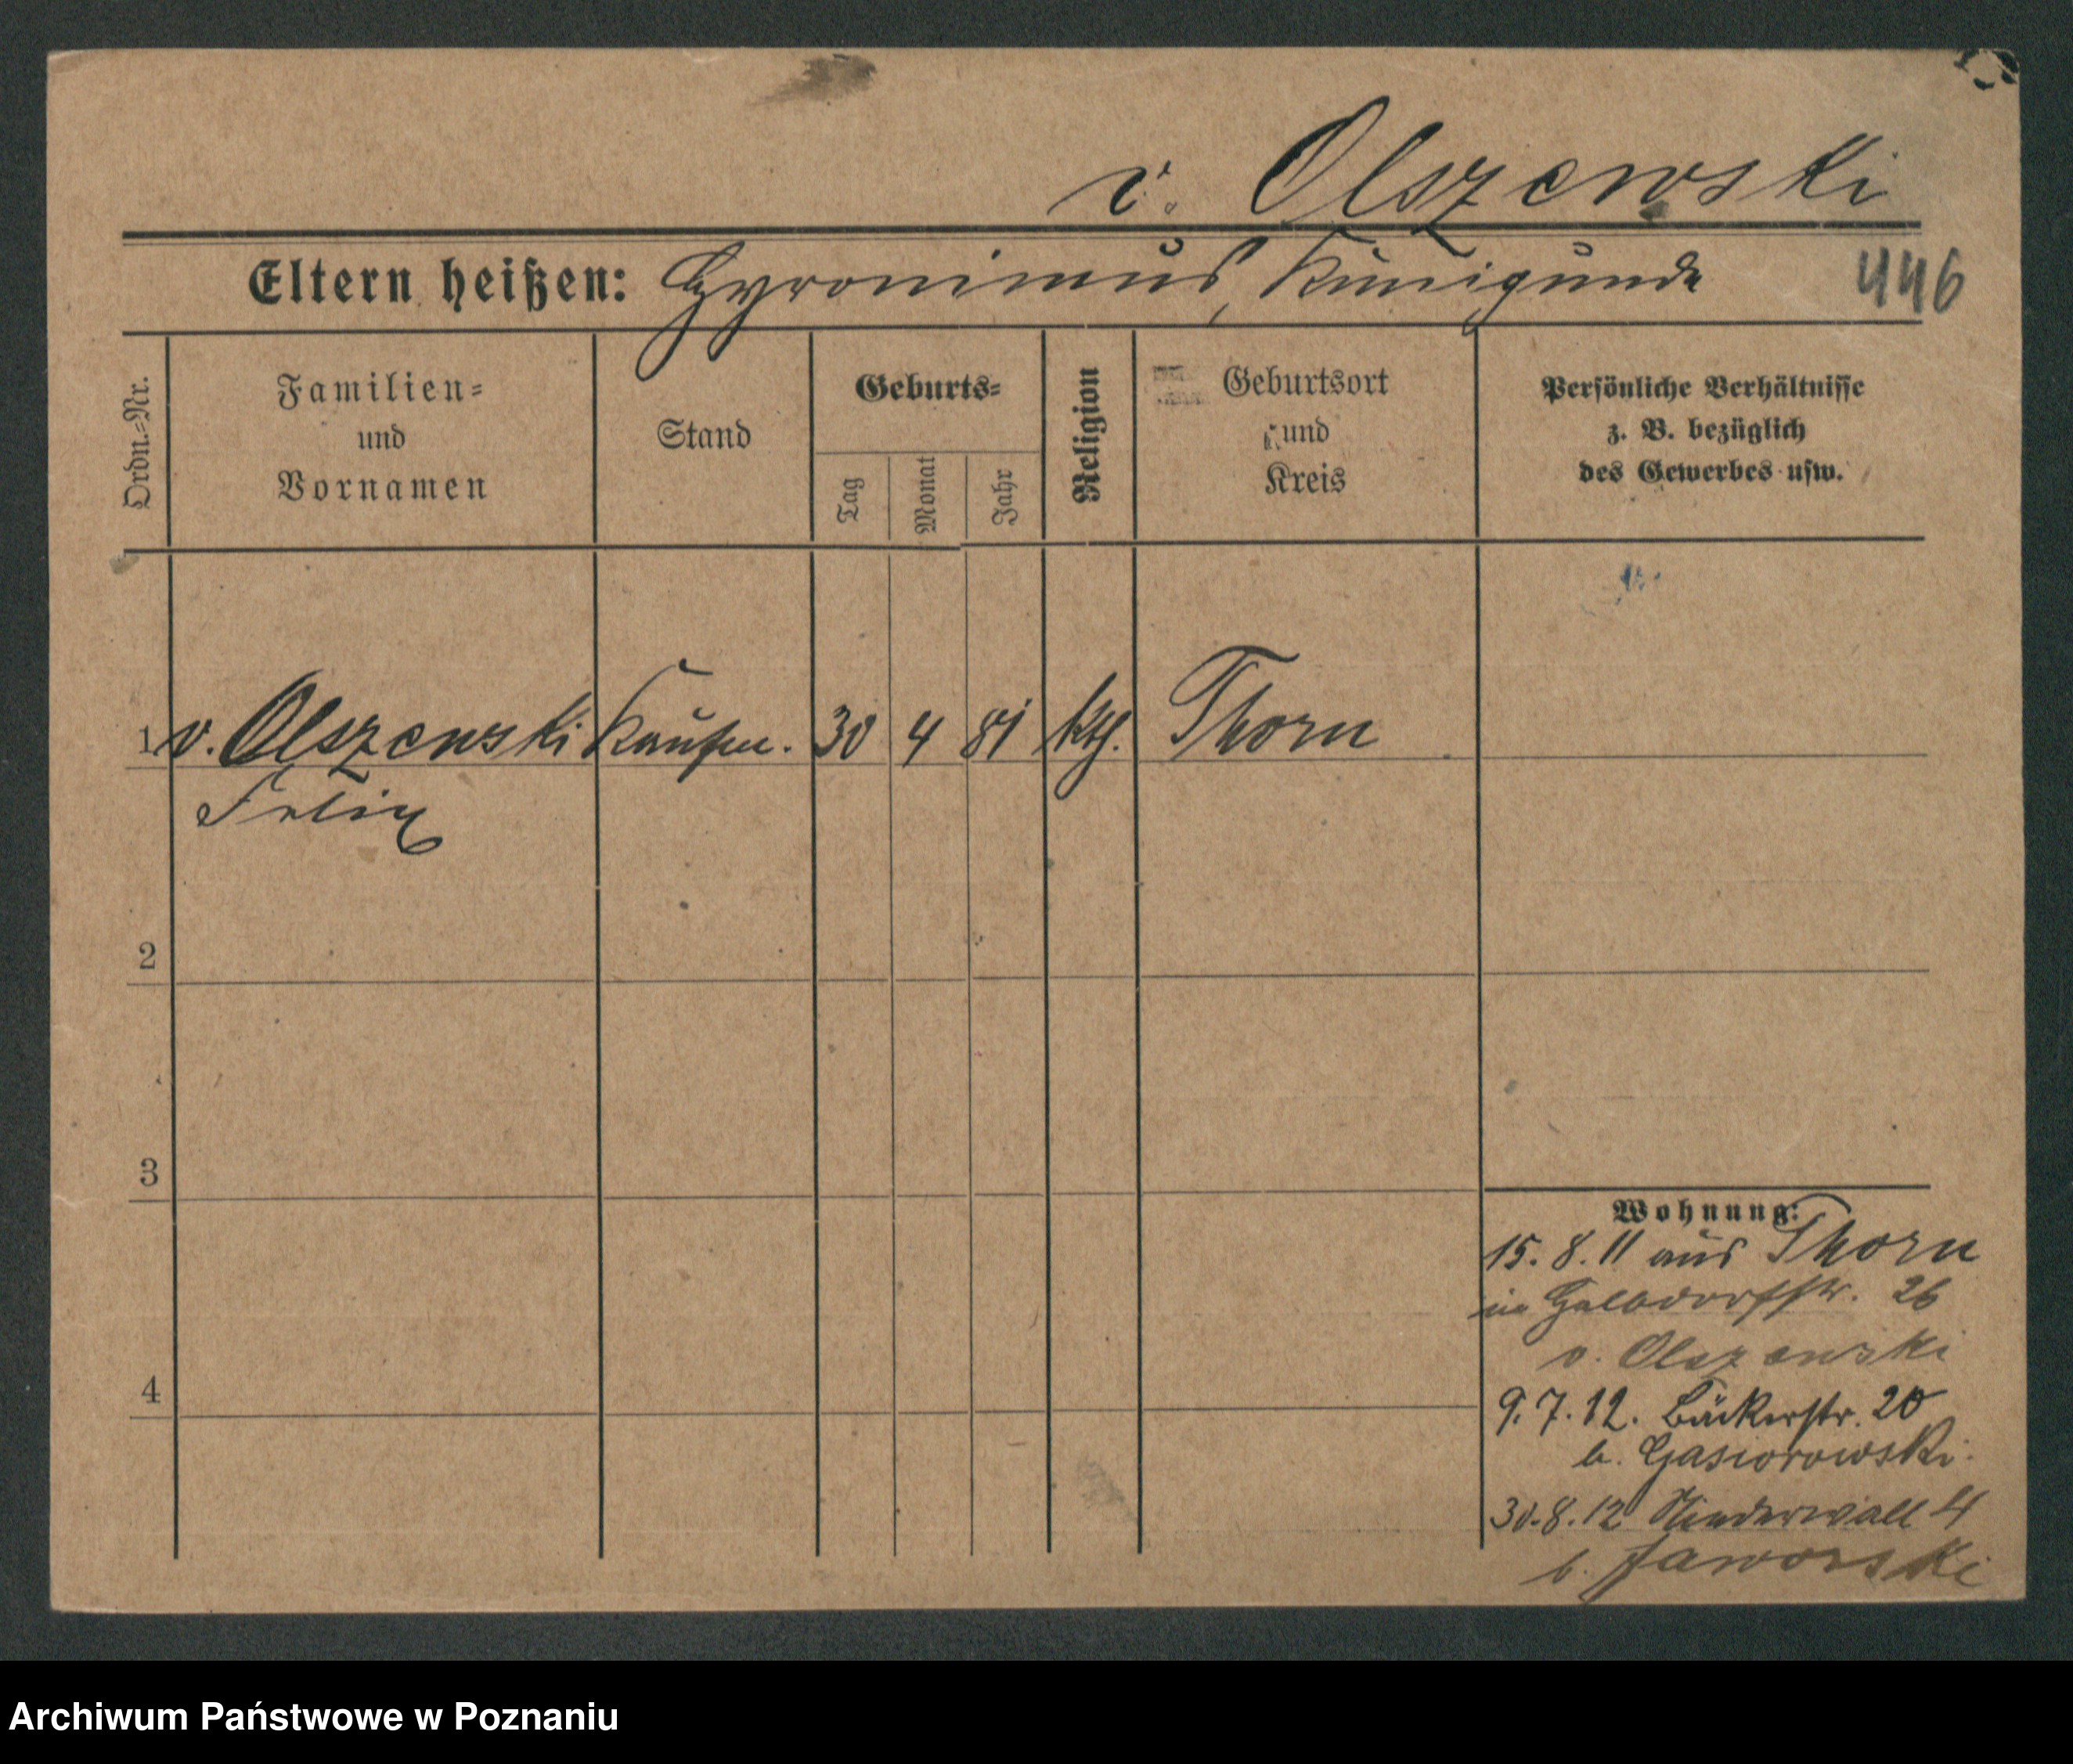 v. Olszewski
Eltern heißen: Hyronimus, Kunigunde 446
Ordn.=Nr.
Familien=
und
Vornamen
Stand
Geburts=
Tag
Monat
Jahr
Religion
Geburtsort
und
Kreis
Persönliche Verhältnisse
z. B. bezüglich
des Gewerbes usw.
1 v. Olszewski Kaufm. 30 4 81 kth. Thorn
Felix
2
3
4
Wohnung:
15. 8. 11 aus Thorn
in Halbdorfstr. 26
v. Olszewski
9. 7. 12. Bäckerstr. 20
b. Gasiorowski.
30. 8. 12 Niederwall 4
b. Jaworski
Archiwum Państwowe w Poznaniu